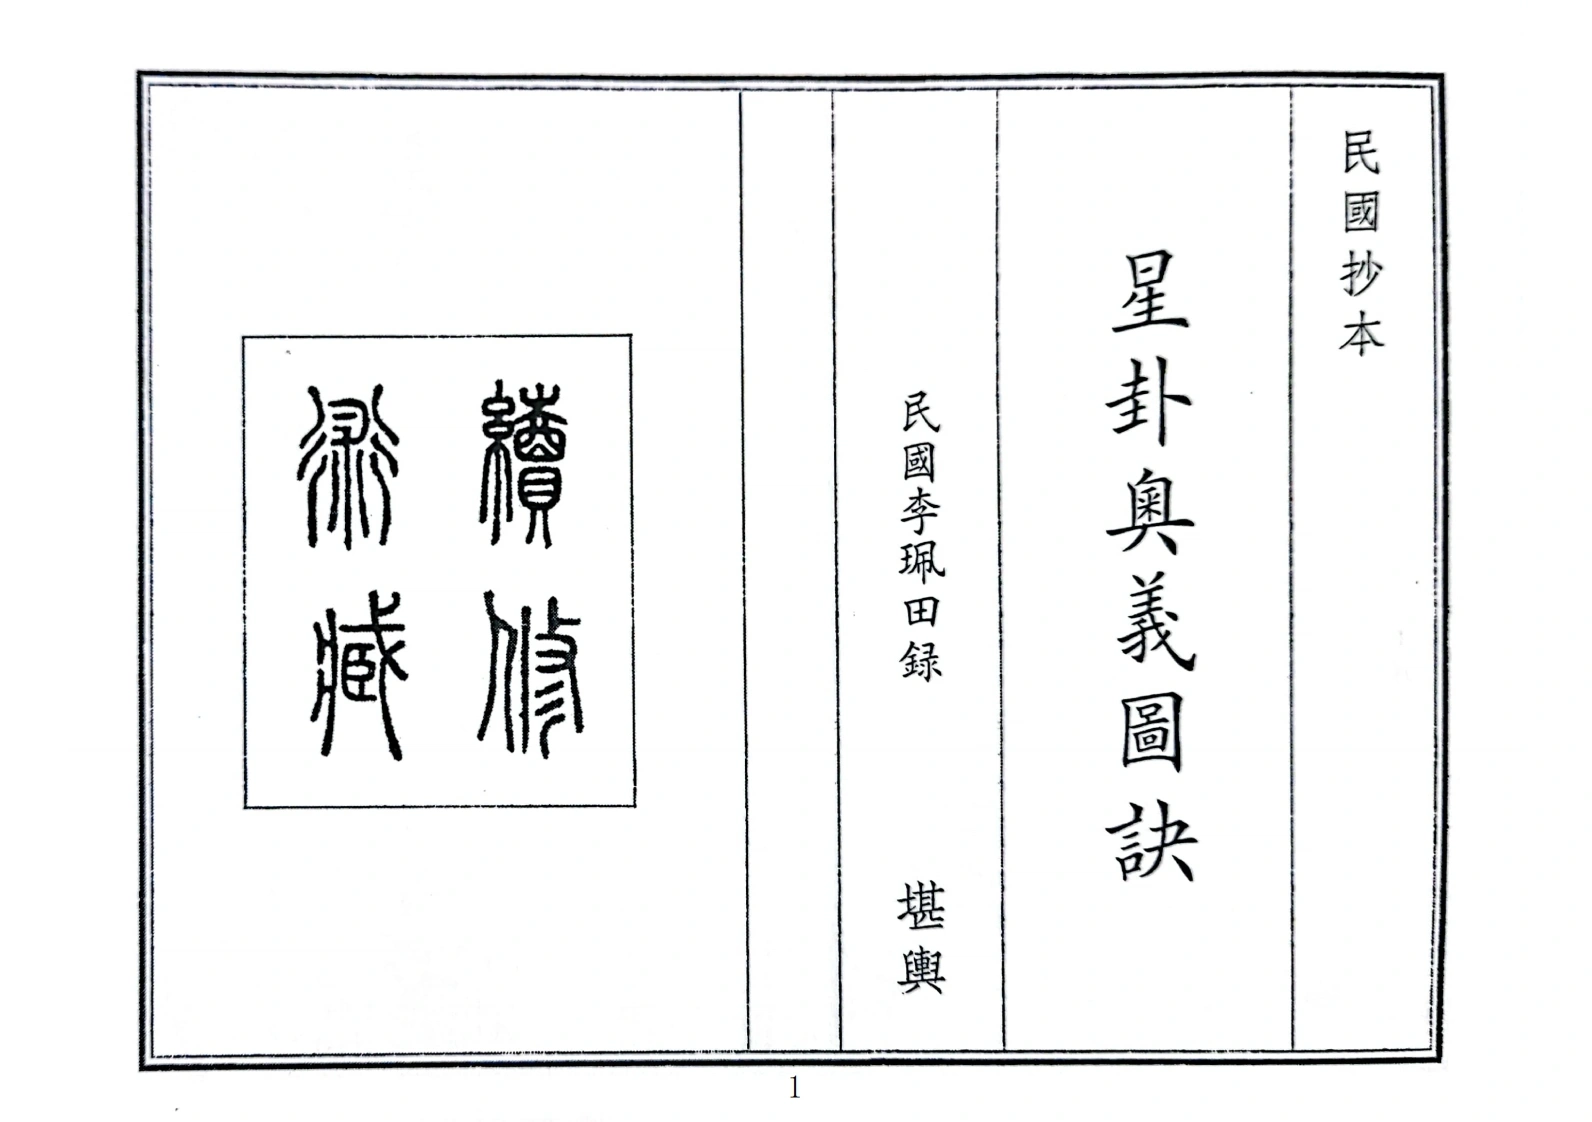 民國抄本
星卦奧義圖訣
民國李珮田録
堪輿
續修
術藏
1